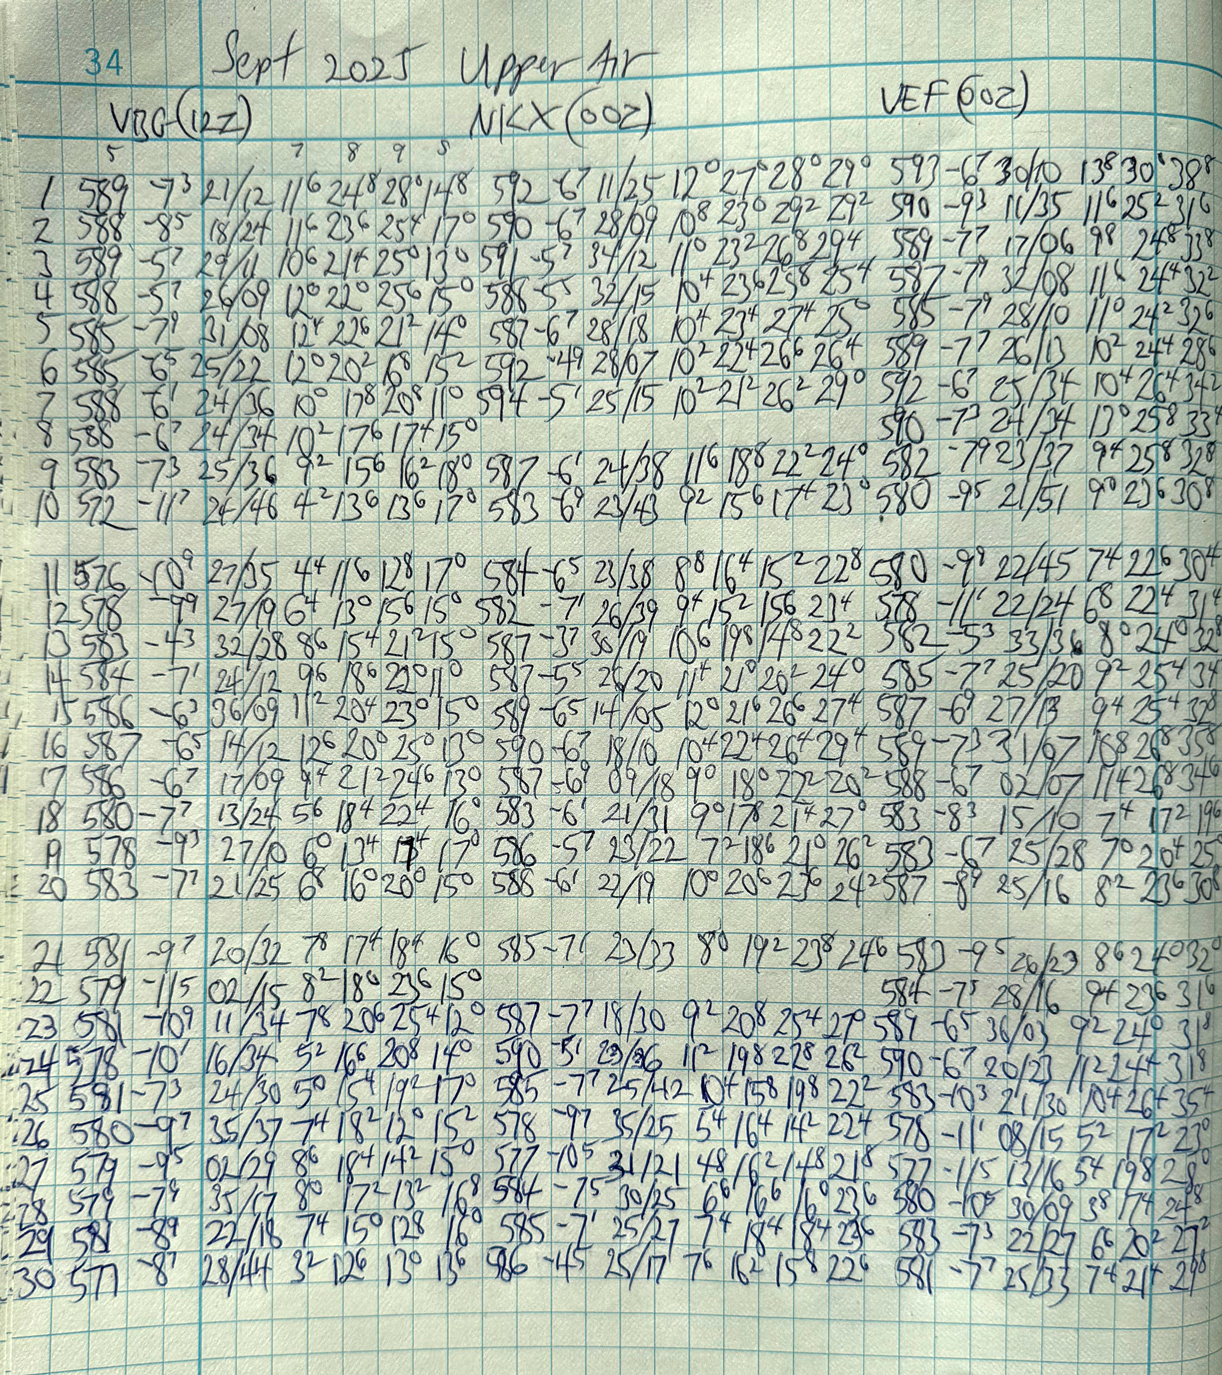 34 Sept 2025 Upper Air
VBG(12Z) NKX(00Z) VEF(00Z)
5 7 8 9 5
1 589 -7³ 21/12 11⁶ 24⁸ 28⁰ 14⁸ 592 -6⁷ 11/25 12⁰ 27⁰ 28⁰ 29⁰ 593 -6⁷ 30/10 13⁸ 30⁰ 38⁸
2 588 -8⁵ 18/24 11⁶ 23⁶ 25⁴ 17⁰ 590 -6⁷ 28/09 10⁸ 23⁰ 29² 29² 590 -9³ 11/35 11⁶ 25² 31⁶
3 589 -5⁷ 29/11 10⁶ 21⁴ 25⁰ 13⁰ 591 -5⁷ 34/12 11⁰ 23² 26⁸ 29⁴ 589 -7⁷ 17/06 9⁸ 24⁸ 33⁸
4 588 -5⁷ 26/09 12⁰ 22⁰ 25⁶ 15⁰ 588 -5⁵ 32/15 10⁴ 23⁶ 25⁸ 25⁴ 587 -7⁹ 32/08 11⁶ 24⁴ 32²
5 585 -7⁹ 31/08 12⁴ 22⁶ 21² 14⁰ 587 -6⁷ 28/18 10⁴ 23⁴ 27⁴ 25⁰ 585 -7⁹ 28/10 11⁰ 24² 32⁶
6 585 -6⁵ 25/22 12⁰ 20² 16⁸ 15² 592 -4⁹ 28/07 10² 22⁴ 26⁶ 26⁴ 589 -7⁷ 26/13 10² 24⁴ 28⁶
7 588 -6¹ 24/36 10⁰ 17⁸ 20⁸ 11⁰ 594 -5¹ 25/15 10² 21² 26² 29⁰ 592 -6⁷ 25/34 10⁴ 26⁴ 34²
8 588 -6⁷ 24/34 10² 17⁶ 17⁴ 15⁰ 590 -7³ 24/34 13⁰ 25⁸ 33⁴
9 583 -7³ 25/36 9² 15⁶ 16² 18⁰ 587 -6¹ 24/38 11⁶ 18⁸ 22² 24⁰ 582 -7⁹ 23/37 9⁴ 25⁸ 32⁸
10 572 -11⁷ 24/46 4² 13⁶ 13⁶ 17⁰ 583 -6⁹ 23/43 9² 15⁶ 17⁴ 23⁰ 580 -9⁵ 21/51 9⁰ 23⁶ 30⁸
11 576 -10⁹ 27/35 4⁴ 11⁶ 12⁸ 17⁰ 584 -6⁵ 23/38 8⁸ 16⁴ 15² 22⁸ 580 -9⁹ 22/45 7⁴ 22⁶ 30⁴
12 578 -9⁹ 27/19 6⁴ 13⁰ 15⁶ 15⁰ 582 -7¹ 26/39 9⁴ 15² 15⁶ 23⁴ 578 -11¹ 22/24 6⁸ 22⁴ 31⁴
13 583 -4³ 32/28 8⁶ 15⁴ 21² 15⁰ 587 -3⁷ 30/19 10⁶ 19⁸ 14⁸ 22² 582 -5³ 33/36 8⁰ 24⁰ 32
14 584 -7¹ 24/12 9⁶ 18⁶ 22⁰ 11⁰ 587 -5⁵ 26/20 11⁴ 21⁰ 20² 24⁰ 585 -7⁷ 25/20 9² 25⁴ 34
15 586 -6³ 36/09 11² 20⁴ 23⁰ 15⁰ 589 -6⁵ 14/05 12⁰ 21⁶ 26⁶ 27⁴ 587 -6⁹ 27/13 9⁴ 25⁴ 32⁰
16 587 -6⁵ 14/12 12⁶ 20⁰ 25⁰ 13⁰ 590 -6⁷ 18/10 10⁴ 22⁴ 26⁴ 29⁴ 589 -7³ 31/07 10⁸ 26⁸ 35⁸
17 586 -6⁷ 17/09 9⁴ 21² 24⁶ 13⁰ 587 -6⁹ 09/18 9⁰ 18⁰ 22² 20² 588 -6⁷ 02/07 11⁴ 26⁸ 34⁶
18 580 -7⁷ 13/24 5⁶ 18⁴ 22⁴ 16⁰ 583 -6¹ 21/31 9⁰ 17⁸ 21⁴ 27⁰ 583 -8³ 15/10 7⁴ 17² 19⁶
19 578 -9³ 27/10 6⁰ 13⁴ 17⁴ 17⁰ 586 -5⁷ 23/22 7² 18⁶ 21⁰ 26² 583 -6⁷ 25/28 7⁰ 20⁴ 25⁰
20 583 -7¹ 21/25 6⁸ 16⁰ 20⁰ 15⁰ 588 -6¹ 22/19 10⁰ 20⁶ 23⁶ 24² 587 -8⁹ 25/16 8² 23⁶ 30⁸
21 581 -9⁷ 20/32 7⁸ 17⁴ 18⁴ 16⁰ 585 -7¹ 23/33 8⁰ 19² 23⁸ 24⁶ 583 -9⁵ 26/23 8⁶ 24⁰ 32⁰
22 579 -11⁵ 02/15 8² 18⁰ 23⁶ 15⁰ 584 -7⁵ 28/16 9⁴ 23⁶ 31⁶
23 581 -10⁹ 11/34 7⁸ 20⁶ 25⁴ 12⁰ 587 -7⁷ 18/30 9² 20⁸ 25⁴ 27⁰ 589 -6⁵ 36/03 9² 24⁰ 31⁸
24 578 -10¹ 16/34 5² 16⁶ 20⁸ 14⁰ 590 -5¹ 23/36 11² 19⁸ 22⁸ 26² 590 -6⁷ 20/23 11² 24⁴ 31⁸
25 581 -7³ 24/30 5⁰ 15⁴ 19² 17⁰ 585 -7⁷ 25/42 10⁴ 15⁸ 19⁸ 22² 583 -10³ 21/30 10⁴ 26⁴ 35⁴
26 580 -9⁷ 35/37 7⁴ 18² 12⁰ 15² 578 -9⁷ 35/25 5⁴ 16⁴ 14² 22⁴ 578 -11¹ 08/15 5² 17² 23⁰
27 579 -9⁵ 02/29 8⁶ 18⁴ 14² 15⁰ 577 -10⁵ 31/21 4⁸ 16² 14⁸ 21⁸ 577 -11⁵ 13/16 5⁴ 19⁸ 28⁰
28 579 -7⁹ 35/17 8⁰ 17² 13² 16⁸ 584 -7⁵ 30/25 6⁶ 16⁶ 16⁰ 23⁶ 580 -10⁵ 30/09 3⁸ 17⁴ 24⁸
29 581 -8⁹ 22/18 7⁴ 15⁰ 12⁸ 16⁰ 585 -7¹ 25/27 7⁴ 18⁴ 18⁴ 23⁶ 583 -7³ 22/27 6⁶ 20² 27²
30 577 -8⁷ 28/44 3² 12⁶ 13⁰ 13⁶ 586 -4⁵ 25/17 7⁶ 16² 15⁸ 22⁶ 581 -7⁷ 25/33 7⁴ 21⁴ 29⁸